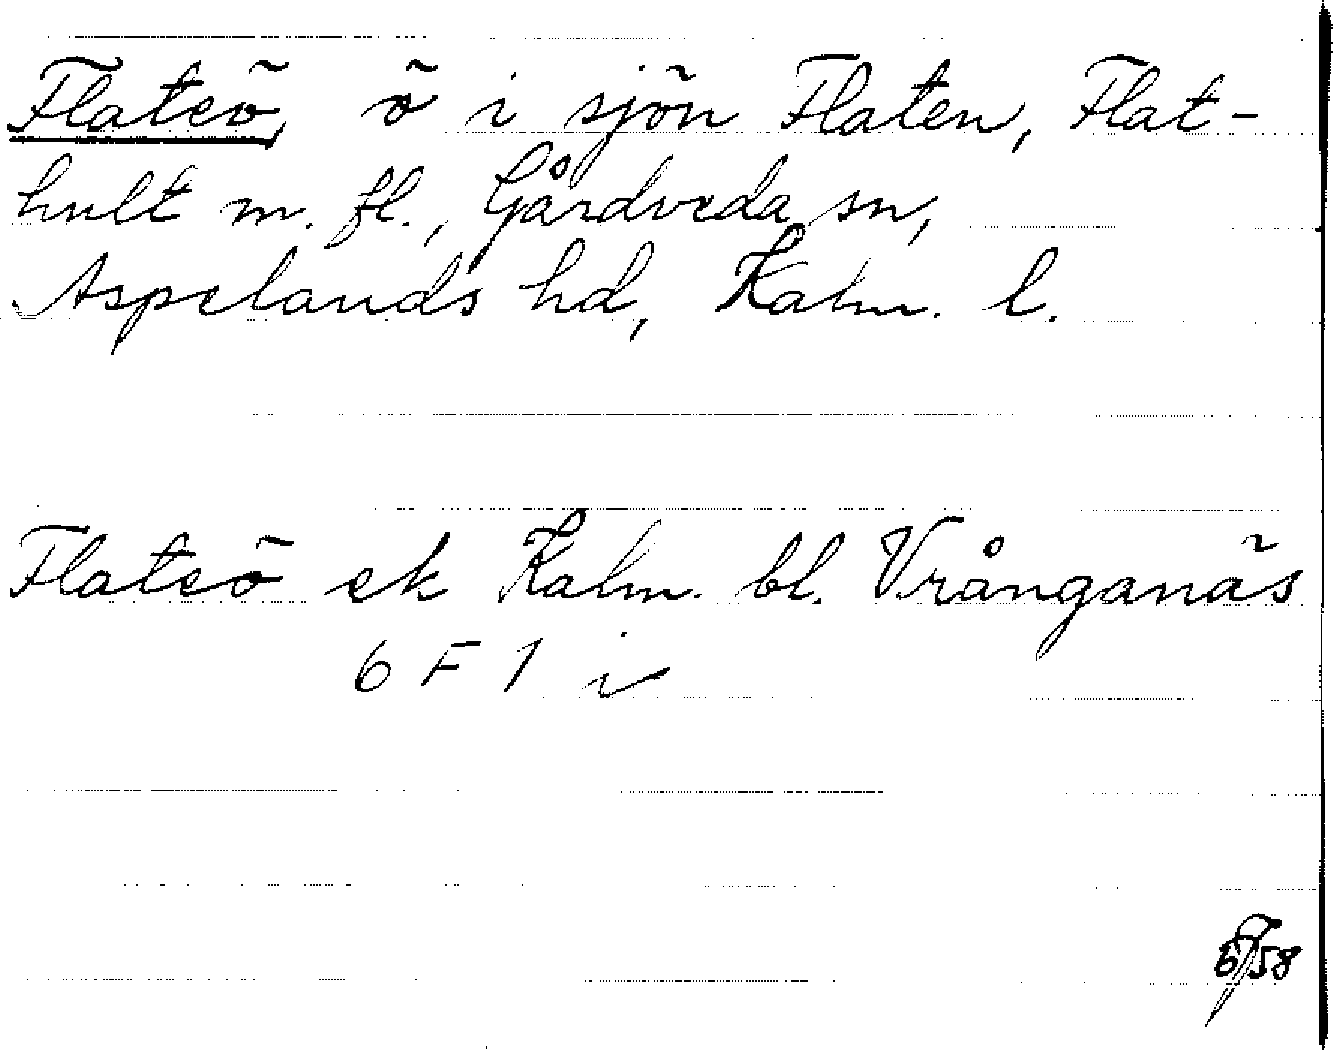 Flateö, ö i sjön Flaten, Flat-
hult m. fl., Gårdveda sn,
Aspelands hd, Kalm. l.
Flateö ek Kalm. bl. Vrånganäs
6 F 1 i
58